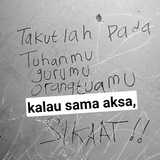 Takutlah Pada
Tuhanmu
gurumu
orangtuamu
kalau sama aksa,
SIKAAT!!